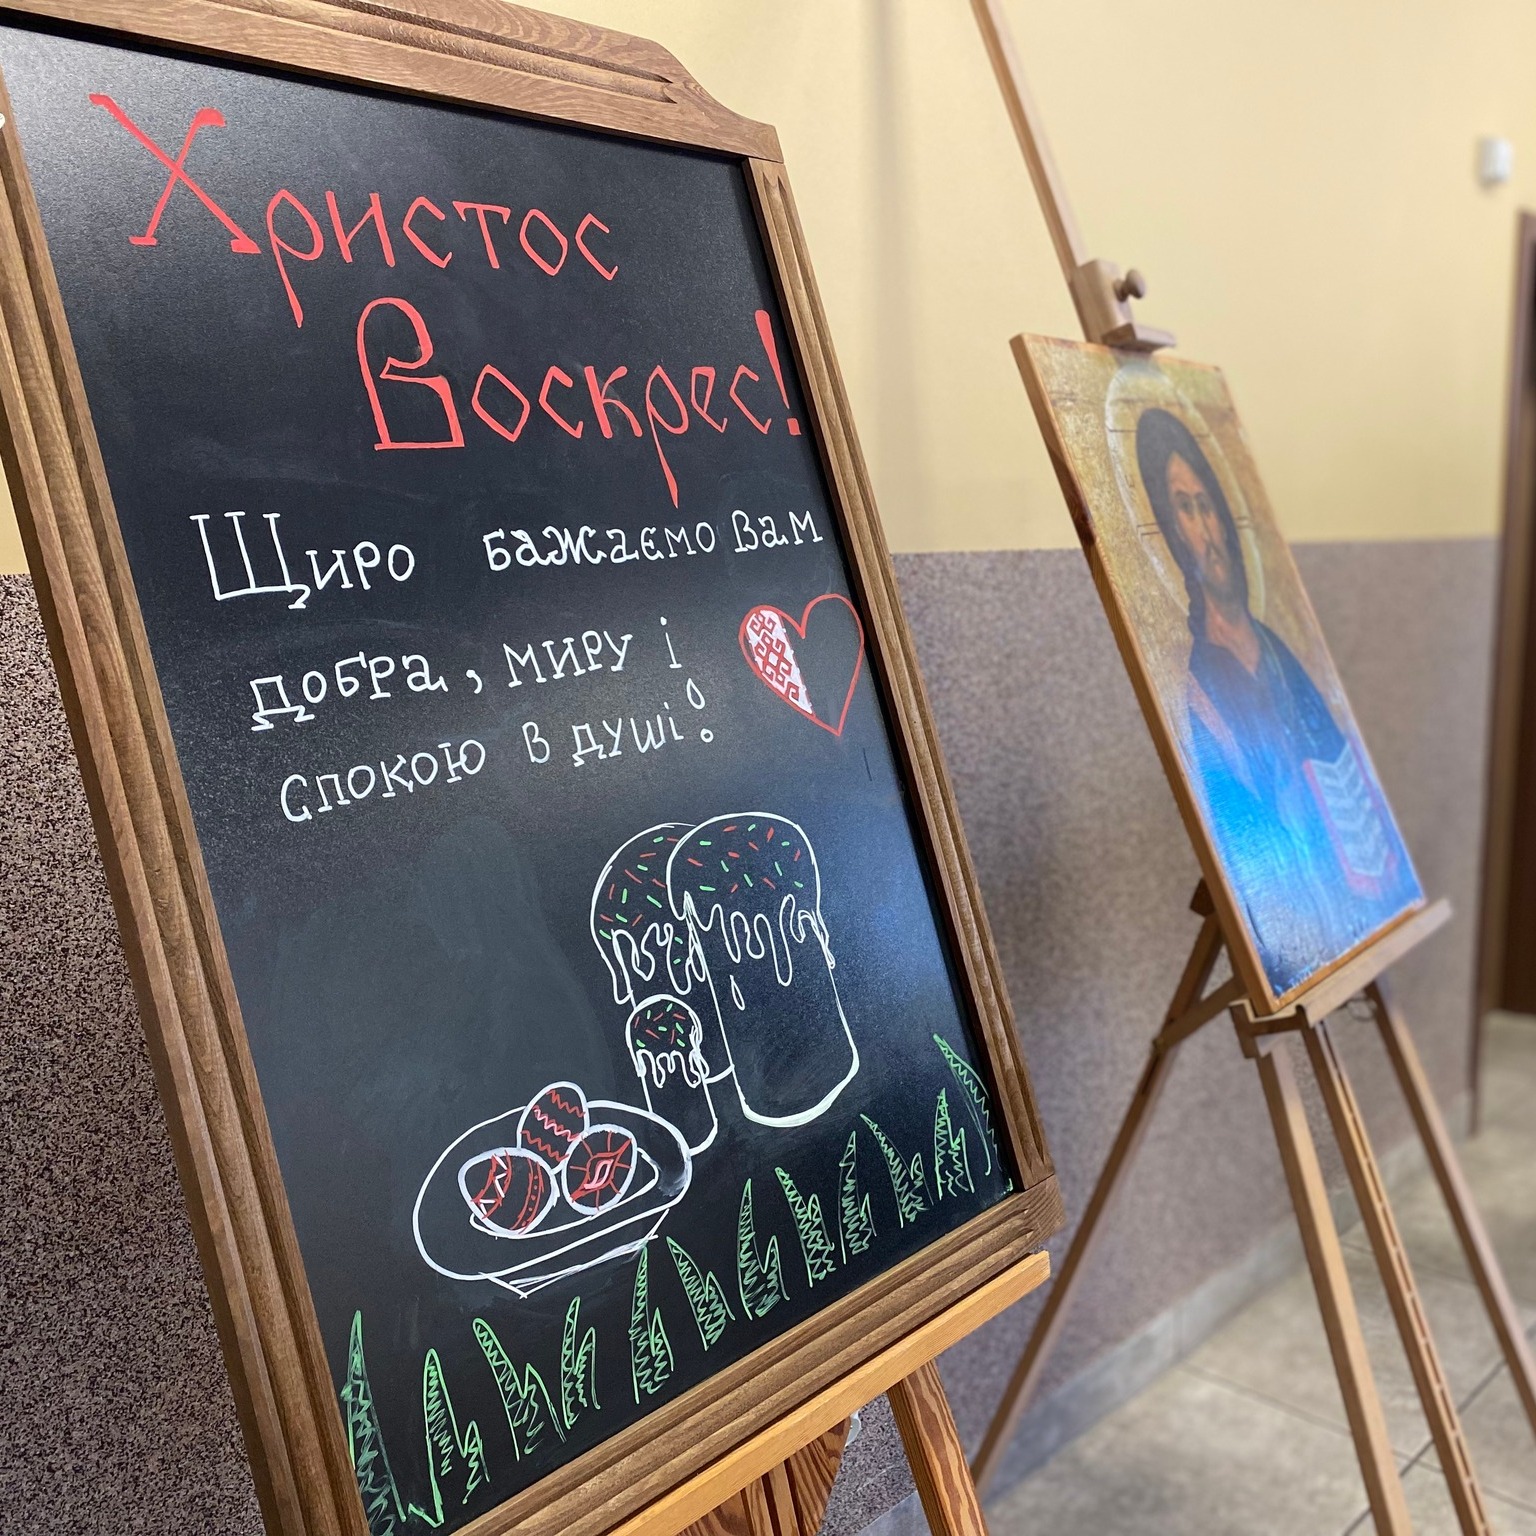 Христос
Воскрес!
Щиро бажаємо Вам
добра, миру і
спокою в душі!